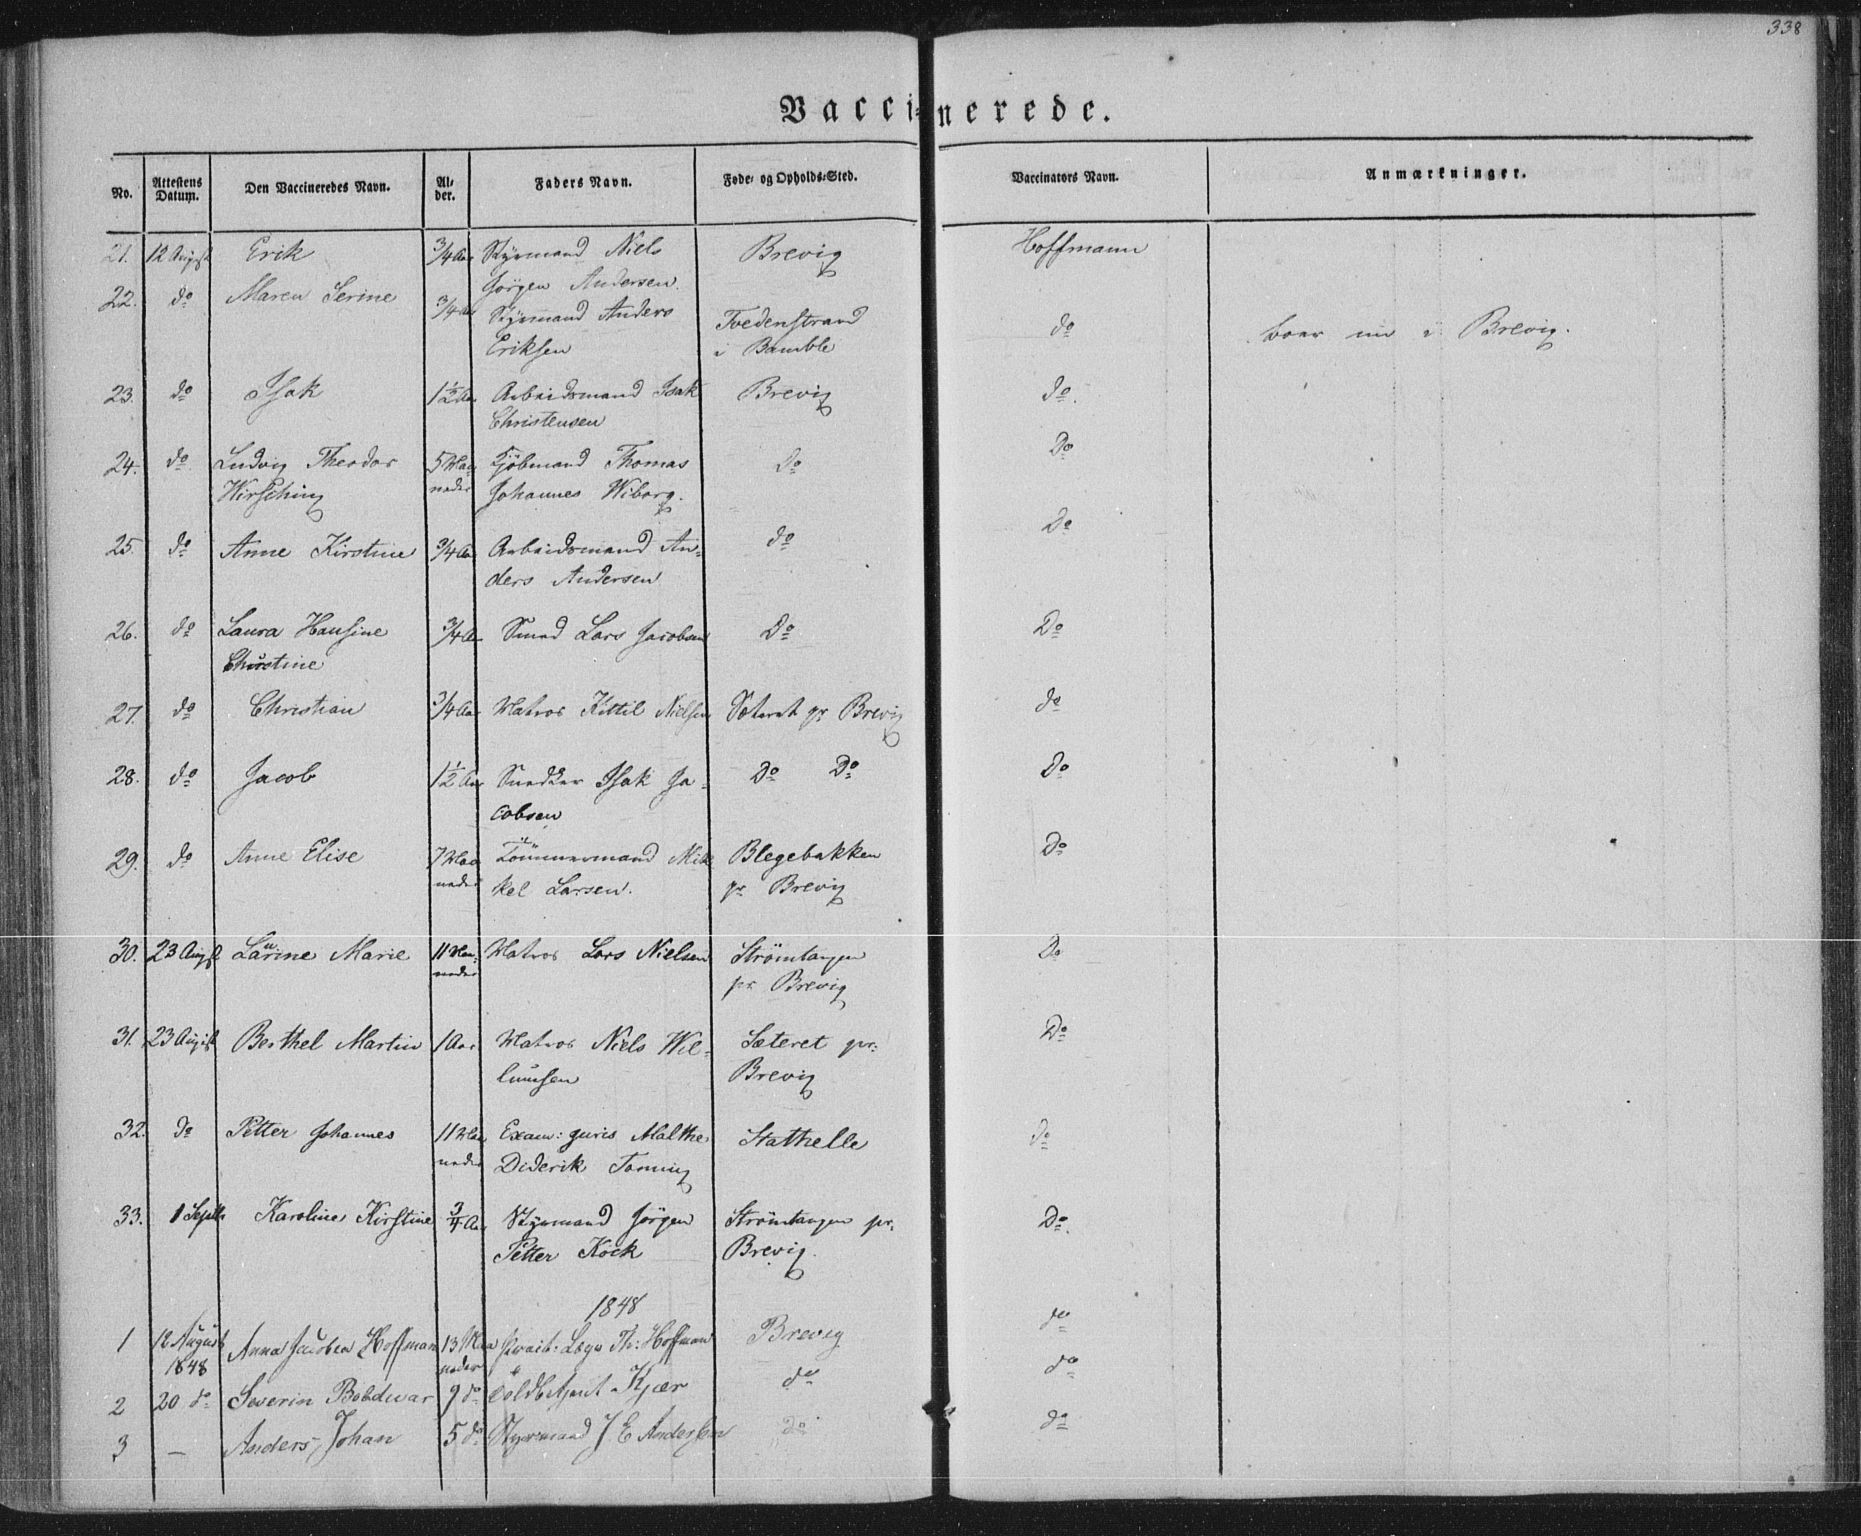 338
Vaccinerede.
No. Attestens Datum. Den Vaccineredes Navn. Alder. Faders Navn. Føde- og Opholds-Sted. Vaccinators Navn. Anmærkninger.
21. 12 August Erik 3/4 Aar Styrmand Niels Brevig Hoffmann
Jörgen Andersen.
22. do Maren Serine 3/4 Aar Styrmand Anders Tvedenstrand do boer nu i Brevig.
Eriksen i Bamble
23. do Isak 1 1/2 Aar Arbeidsmand Isak Brevig do.
Christensen
24. do Ludvig Theodor 5 Maa- Kjöbmand Thomas Do Do
Hirsching neder Johannes Wiborg.
25. do Anne Kirstine 3/4 Aar Arbeidsmand An- do Do
ders Andersen
26. do Laura Hansine 3/4 Aar Smed Lars Jacobsen Do Do
Christine
27. do Christian 3/4 Aar Matros Kittil Nielsen Sæteret pr Brevig do
28. do Jacob 1 1/2 Aar Snedker Isak Ja- Do Do Do
cobsen
29. do Anne Elise 7 Maa Tömmermand Mik Blegebakken Do
neder kel Larsen. pr Brevig
30. 23 August Laurine Marie 11 Maa- Matros Lars Nielsen Strömtangen Do
neder pr Brevig
31. 23 August Berthel Martin 1 Aar Matros Niels Wil- Sæteret pr: Do
lumsen Brevig
32. do Petter Johannes 11 Maa Exam: juris Malthe Stathelle do
neder Diderik
33. 1 Septb Karoline Kirstine 3/4 Aar Styrmand Jörgen Strömtangen pr. Do.
Petter Kock Brevig.
1848
1 12 August Anna Jacobea Hoffman 13 Maa Th: Hoffman Brevig do
1848 neder
2 20 do Severin 9 do Toldbetjent Kjær do do
3 — Anders Johan 5 do Styrmand J E Andersen do do